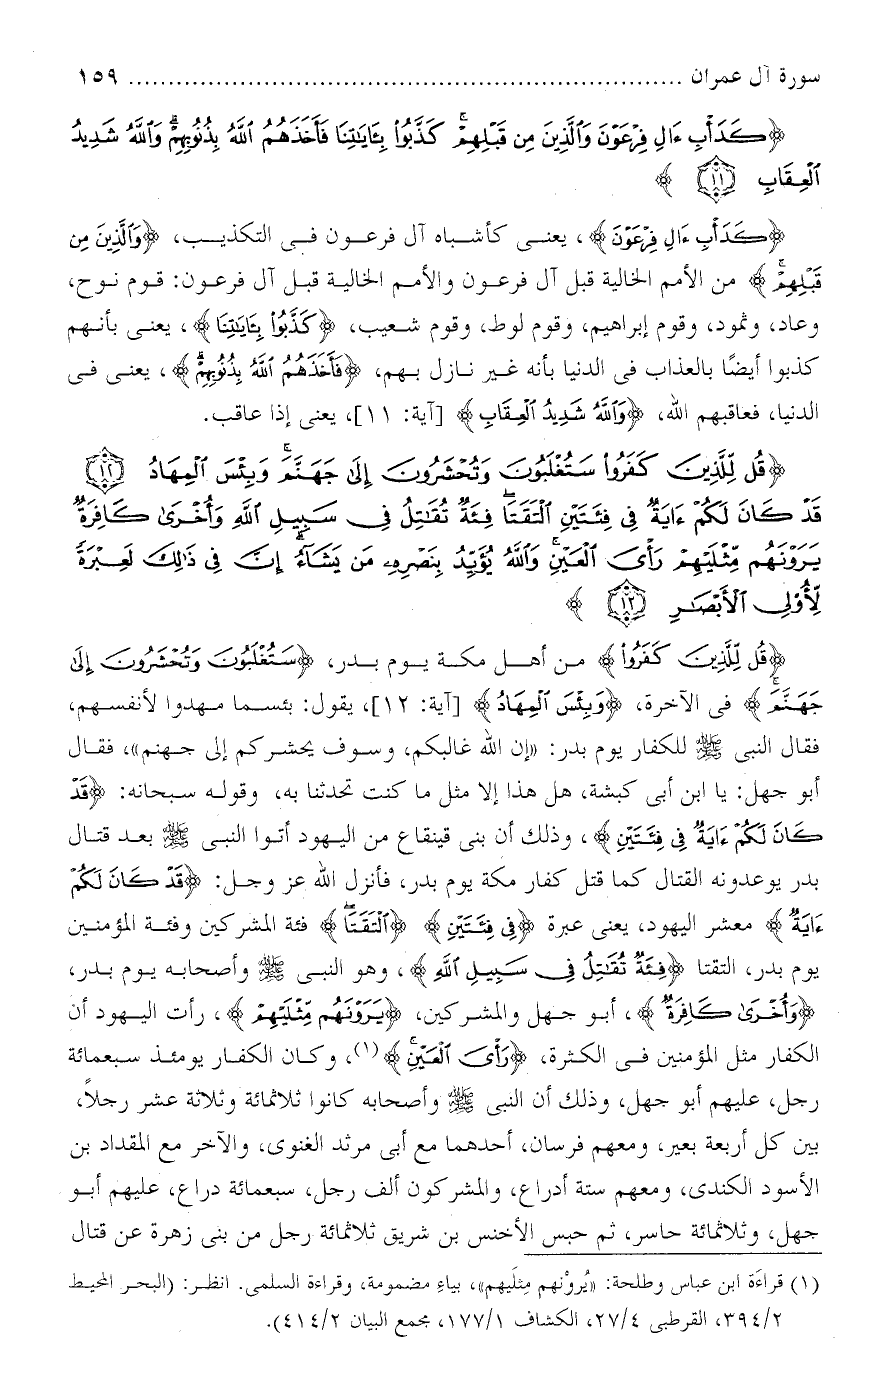 سورة آل عمران ..................................................................... ١٥٩
﴿كَدَأْبِ ءَالِ فِرْعَوْنَ وَالَّذِينَ مِن قَبْلِهِمْ ۚ كَذَّبُوا۟ بِـَٔايَٰتِنَا فَأَخَذَهُمُ اللَّهُ بِذُنُوبِهِمْ ۗ وَاللَّهُ شَدِيدُ
الْعِقَابِ (١١) ﴾
﴿كَدَأْبِ ءَالِ فِرْعَوْنَ﴾، يعنى كأشباه آل فرعون فى التكذيب، ﴿وَالَّذِينَ مِن
قَبْلِهِمْ ۚ﴾ من الأمم الخالية قبل آل فرعون والأمم الخالية قبل آل فرعون: قوم نوح،
وعاد، وثمود، وقوم إبراهيم، وقوم لوط، وقوم شعيب، ﴿كَذَّبُوا۟ بِـَٔايَٰتِنَا﴾، يعنى بأنهم
كذبوا أيضًا بالعذاب فى الدنيا بأنه غير نازل بهم، ﴿فَأَخَذَهُمُ اللَّهُ بِذُنُوبِهِمْ ۗ﴾، يعنى فى
الدنيا، فعاقبهم الله، ﴿وَاللَّهُ شَدِيدُ الْعِقَابِ﴾ [آية: ١١]، يعنى إذا عاقب.
﴿قُل لِّلَّذِينَ كَفَرُوا۟ سَتُغْلَبُونَ وَتُحْشَرُونَ إِلَىٰ جَهَنَّمَ ۚ وَبِئْسَ الْمِهَادُ (١٢)
قَدْ كَانَ لَكُمْ ءَايَةٌ فِى فِئَتَيْنِ الْتَقَتَا ۖ فِئَةٌ تُقَٰتِلُ فِى سَبِيلِ اللَّهِ وَأُخْرَىٰ كَافِرَةٌ
يَرَوْنَهُم مِّثْلَيْهِمْ رَأْىَ الْعَيْنِ ۚ وَاللَّهُ يُؤَيِّدُ بِنَصْرِهِۦ مَن يَشَآءُ ۗ إِنَّ فِى ذَٰلِكَ لَعِبْرَةً
لِّأُو۟لِى الْأَبْصَٰرِ (١٣) ﴾
﴿قُل لِّلَّذِينَ كَفَرُوا۟﴾ من أهل مكة يوم بدر، ﴿سَتُغْلَبُونَ وَتُحْشَرُونَ إِلَىٰ
جَهَنَّمَ ۚ﴾ فى الآخرة، ﴿وَبِئْسَ الْمِهَادُ﴾ [آية: ١٢]، يقول: بئسما مهدوا لأنفسهم،
فقال النبى ﷺ للكفار يوم بدر: «إن الله غالبكم، وسوف يحشركم إلى جهنم»، فقال
أبو جهل: يا ابن أبى كبشة، هل هذا إلا مثل ما كنت تحدثنا به، وقوله سبحانه: ﴿قَدْ
كَانَ لَكُمْ ءَايَةٌ فِى فِئَتَيْنِ﴾، وذلك أن بنى قينقاع من اليهود أتوا النبى ﷺ بعد قتال
بدر يوعدونه القتال كما قتل كفار مكة يوم بدر، فأنزل الله عز وجل: ﴿قَدْ كَانَ لَكُمْ
ءَايَةٌ﴾ معشر اليهود، يعنى عبرة ﴿فِى فِئَتَيْنِ﴾ ﴿الْتَقَتَا ۖ﴾ فئة المشركين وفئة المؤمنين
يوم بدر، التقتا ﴿فِئَةٌ تُقَٰتِلُ فِى سَبِيلِ اللَّهِ﴾، وهو النبى ﷺ وأصحابه يوم بدر،
﴿وَأُخْرَىٰ كَافِرَةٌ﴾، أبو جهل والمشركين، ﴿يَرَوْنَهُم مِّثْلَيْهِمْ﴾، رأت اليهود أن
الكفار مثل المؤمنين فى الكثرة، ﴿رَأْىَ الْعَيْنِ ۚ﴾(١)، وكان الكفار يومئذ سبعمائة
رجل، عليهم أبو جهل، وذلك أن النبى ﷺ وأصحابه كانوا ثلاثمائة وثلاثة عشر رجلاً،
بين كل أربعة بعير، ومعهم فرسان، أحدهما مع أبى مرثد الغنوى، والآخر مع المقداد بن
الأسود الكندى، ومعهم ستة أدراع، والمشركون ألف رجل، سبعمائة دراع، عليهم أبو
جهل، وثلاثمائة حاسر، ثم حبس الأخنس بن شريق ثلاثمائة رجل من بنى زهرة عن قتال
(١) قراءَة ابن عباس وطلحة: «يُروْنهم مِثلَيهم»، بياءِ مضمومة، وقراءة السلمى. انظر: (البحر المحيط
٣٩٤/٢، القرطبى ٢٧/٤، الكشاف ١٧٧/١، مجمع البيان ٤١٤/٢).